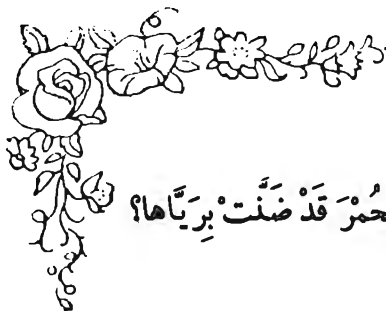 حُمْرَ قَدْ ضَنَّتْ بِرَيَّاها؟